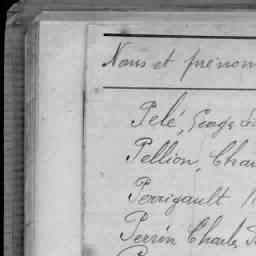 Noms et prénom
Pelé, George
Pellion, Char
Perrigault
Perrin Charles